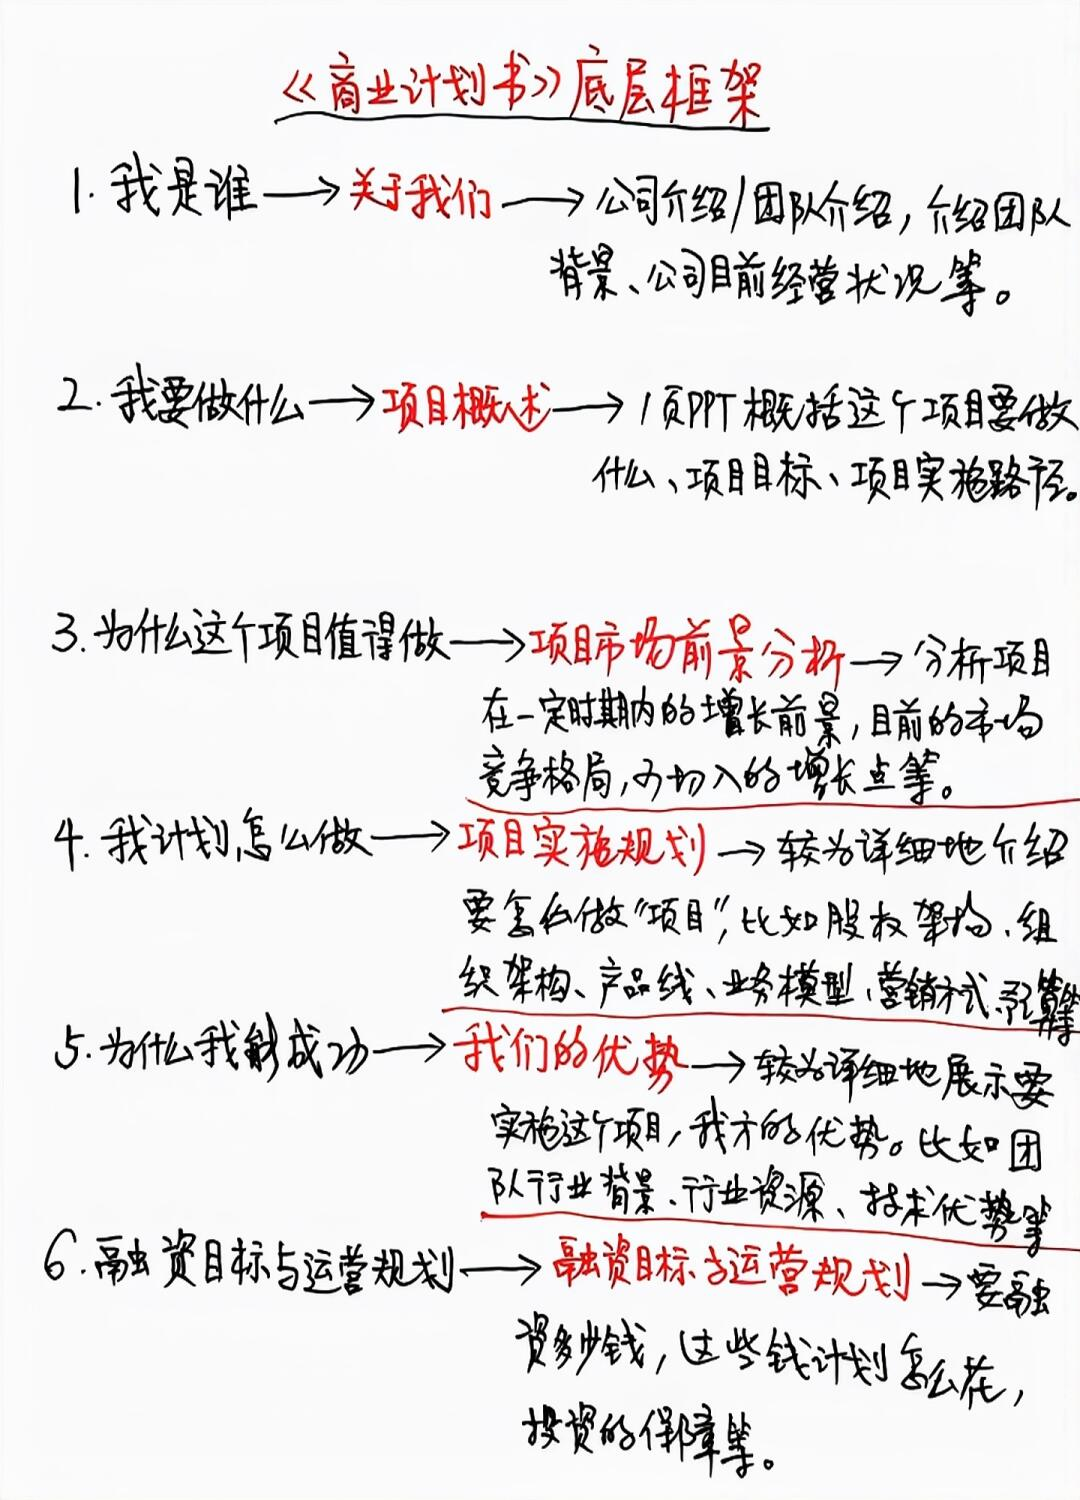 《商业计划书》底层框架
1.我是谁→关于我们→公司介绍/团队介绍，介绍团队
背景、公司目前经营状况等。
2.我要做什么→项目概述→1页PPT概括这个项目要做
什么、项目目标、项目实施路径。
3.为什么这个项目值得做→项目市场前景分析→分析项目
在一定时期内的增长前景，目前的市场
竞争格局，可切入的增长点等。
4.我计划怎么做→项目实施规划→较为详细地介绍
要怎么做“项目”，比如股权架构、组
织架构、产品线、业务模型、营销方式、等
5.为什么我能成功→我们的优势→较为详细地展示要
实施这个项目，我方的优势。比如团
队行业背景、行业资源、技术优势等
6.融资目标与运营规划→融资目标与运营规划→要融
资多少钱，这些钱计划怎么花，
投资的保障等。